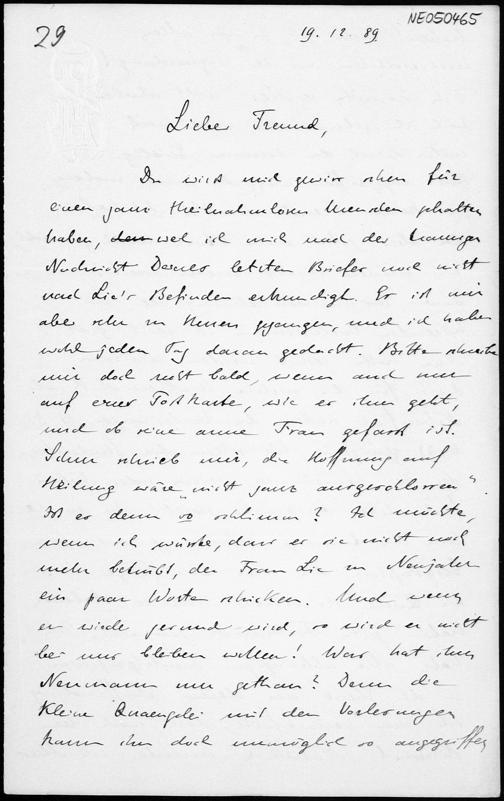 NE050465
29
19. 12. 89
Lieber Freund,
Du wirst mich gewiss schon für
einen ganz theilnahmlosen Menschen gehalten
haben, weil ich mich nach der traurigen
Nachricht Deines letzten Briefes noch nicht
nach Lie's Befinden erkundigt. Es ist mir
aber sehr zu Herzen gegangen, und ich habe
wohl jeden Tag daran gedacht. Bitte schreibe
mir doch recht bald, wenn auch nur
auf einer Postkarte, wie es ihm geht,
und ob seine arme Frau gefasst ist.
schrieb mir, die Hoffnung auf
Heilung wäre „nicht ganz ausgeschlossen".
Ist es denn so schlimm? Ich möchte,
wenn ich wüsste, dass es sie nicht noch
mehr betrübt, der Frau Lie zu Neujahr
ein paar Worte schicken. Und wenn
er wieder gesund wird, so wird er nicht
bei uns bleiben wollen! Was hat ihm
Neumann nur gethan? Denn die
kleine Quaengelei mit den Vorlesungen
kann ihn doch unmöglich so angegriffen